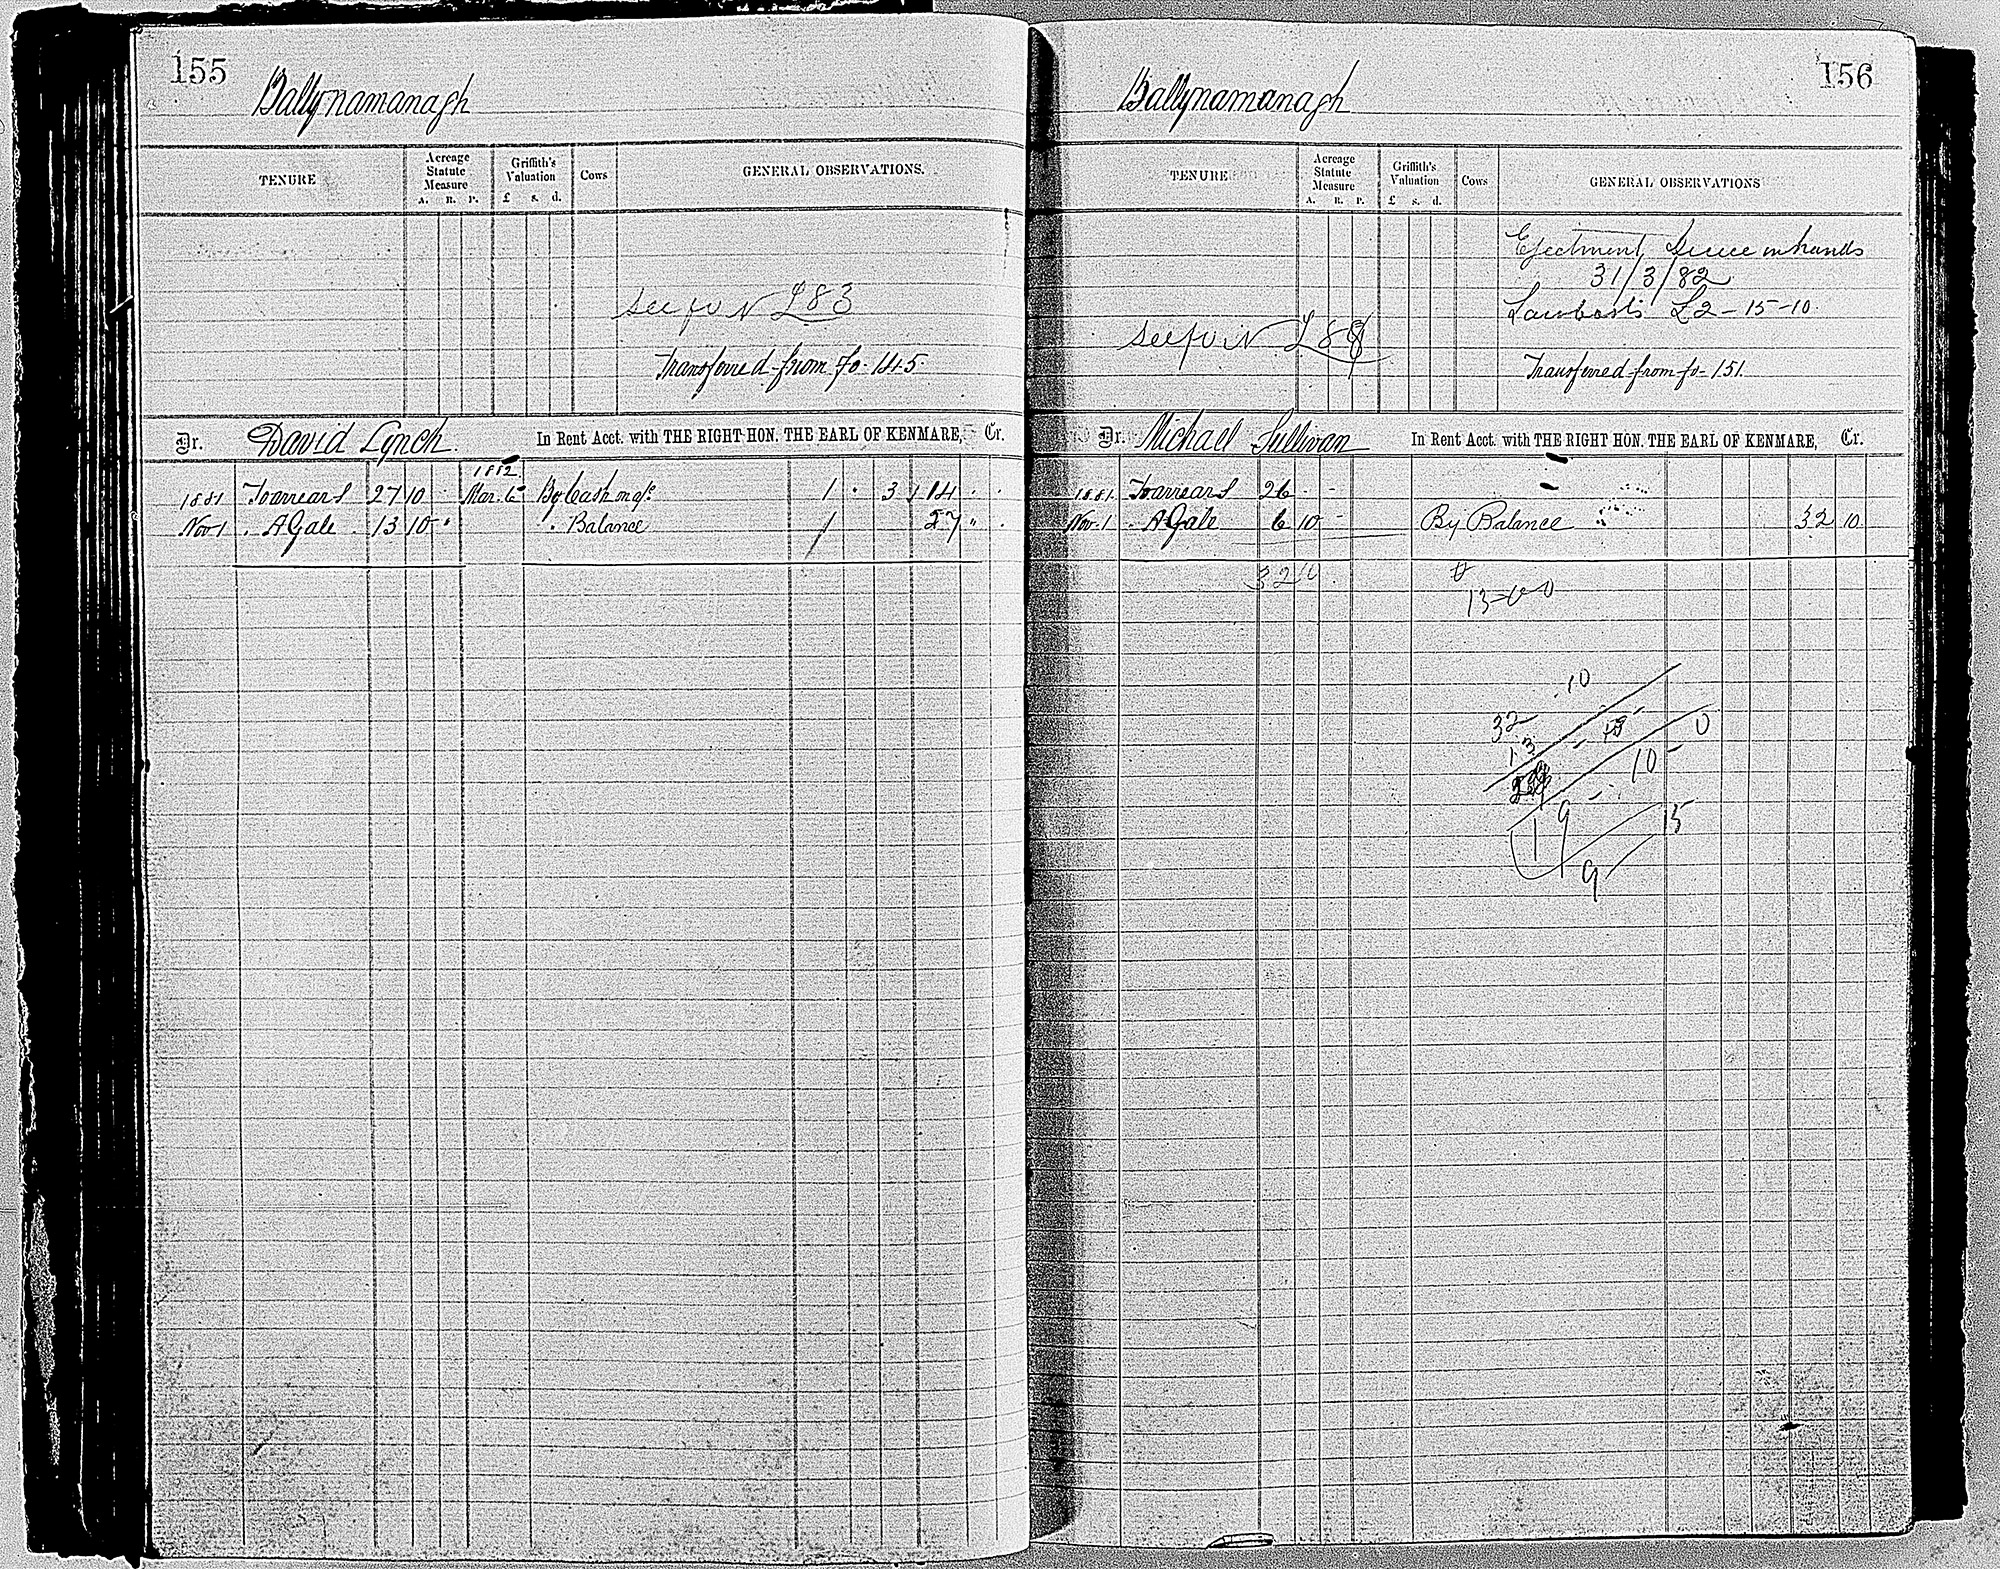 155
Ballynamanagh
TENURE
Acreage Statute Measure
A. R. P.
Griffith's Valuation
£ s. d.
Cows
GENERAL OBSERVATIONS.
See fo N L 83
Transferred from fo. 145.
Dr. David Lynch. In Rent Acct. with THE RIGHT HON. THE EARL OF KENMARE, Cr.
1882
1881 To arrears 27 10 Mar. 6 By Cash 1 3 14
Nov 1 . A Gale . 13 10 . Balance 27 "
156
Ballynamanagh
TENURE
Acreage Statute Measure
A. R. P.
Griffith's Valuation
£ s. d.
Cows
GENERAL OBSERVATIONS
Ejectment in hands
31/3/82
Law Costs £2-15-10
See fo N L 88
Transferred from fo-151.
Dr. Michael Sullivan In Rent Acct. with THE RIGHT HON. THE EARL OF KENMARE, Cr.
1881. To arrears 26 - -
Nov. 1 . A Gale 6 10 - By Balance 32 10
32
13
10
32
13
10
0
19
15
9